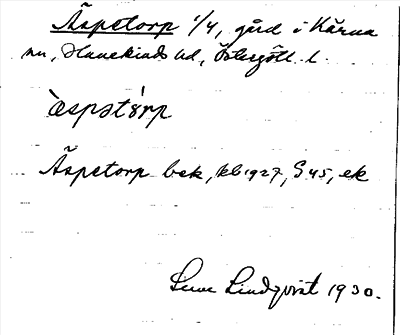 Äspetorp 1/4, gård i Kärna
sn, Hanekinds hd, Östergötl. l.
àspetórp
Äspetorp bek, kb 1927, S 45, ek
Sune Lindqvist 1930.